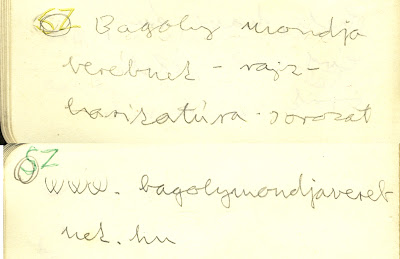 52 Bagoly mondja
verebnek - rajz-
karikatúra-sorozat
52
www.bagolymondjavereb
nek.hu